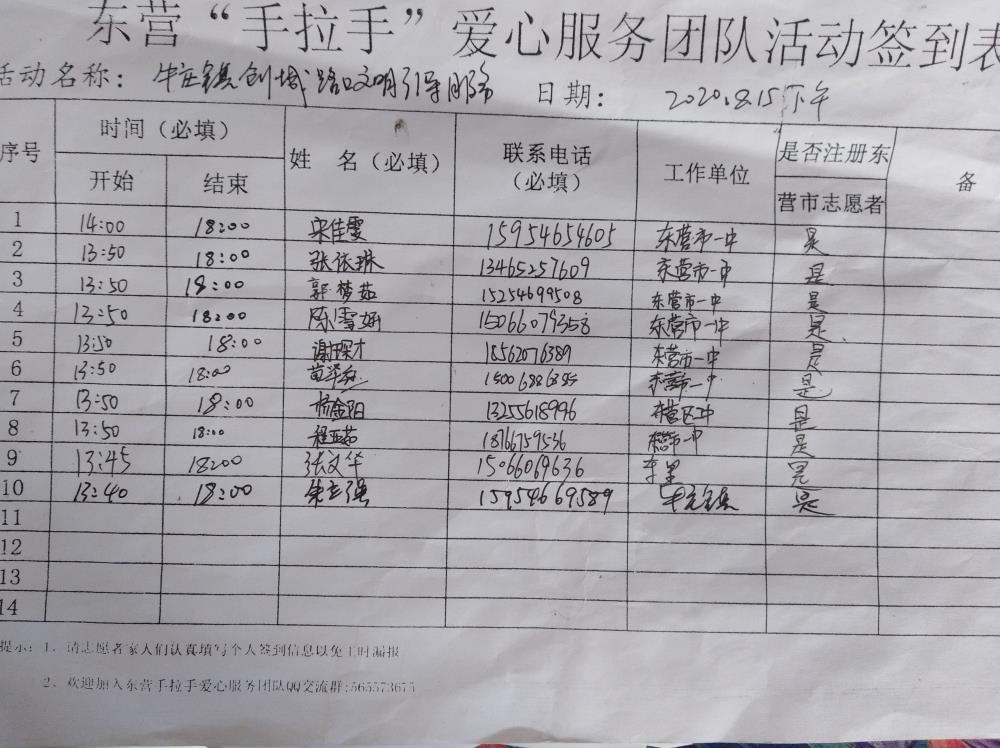 东营“手拉手”爱心服务团队活动签到表
活动名称：牛庄镇创城路口文明引导服务 日期：2020.8.15下午
序号 时间（必填） 姓 名（必填） 联系电话（必填） 工作单位 是否注册东营市志愿者 备
开始 结束
1 14:00 18:00 宋佳雯 15954654605 东营市一中 是
2 13:50 18:00 张依琳 13465257609 东营市一中 是
3 13:50 18:00 郭梦茹 15254699508 东营市一中 是
4 13:50 18:00 陈雪妍 15066079358 东营市一中 是
5 13:50 18:00 18562076389 东营市一中 是
6 13:50 18:00 东营市一中 是
7 13:50 18:00 杨金阳 13255618996 是
8 13:50 18:00 程亚茹 18766759536 东营市一中 是
9 13:45 18:00 张文华 15066069636
10 13:40 18:00 15954669589 牛庄镇 是
11
12
13
14
提示：1、请志愿者家人们认真填写个人签到信息以免工时漏报
2、欢迎加入东营手拉手爱心服务团队QQ交流群:565573675